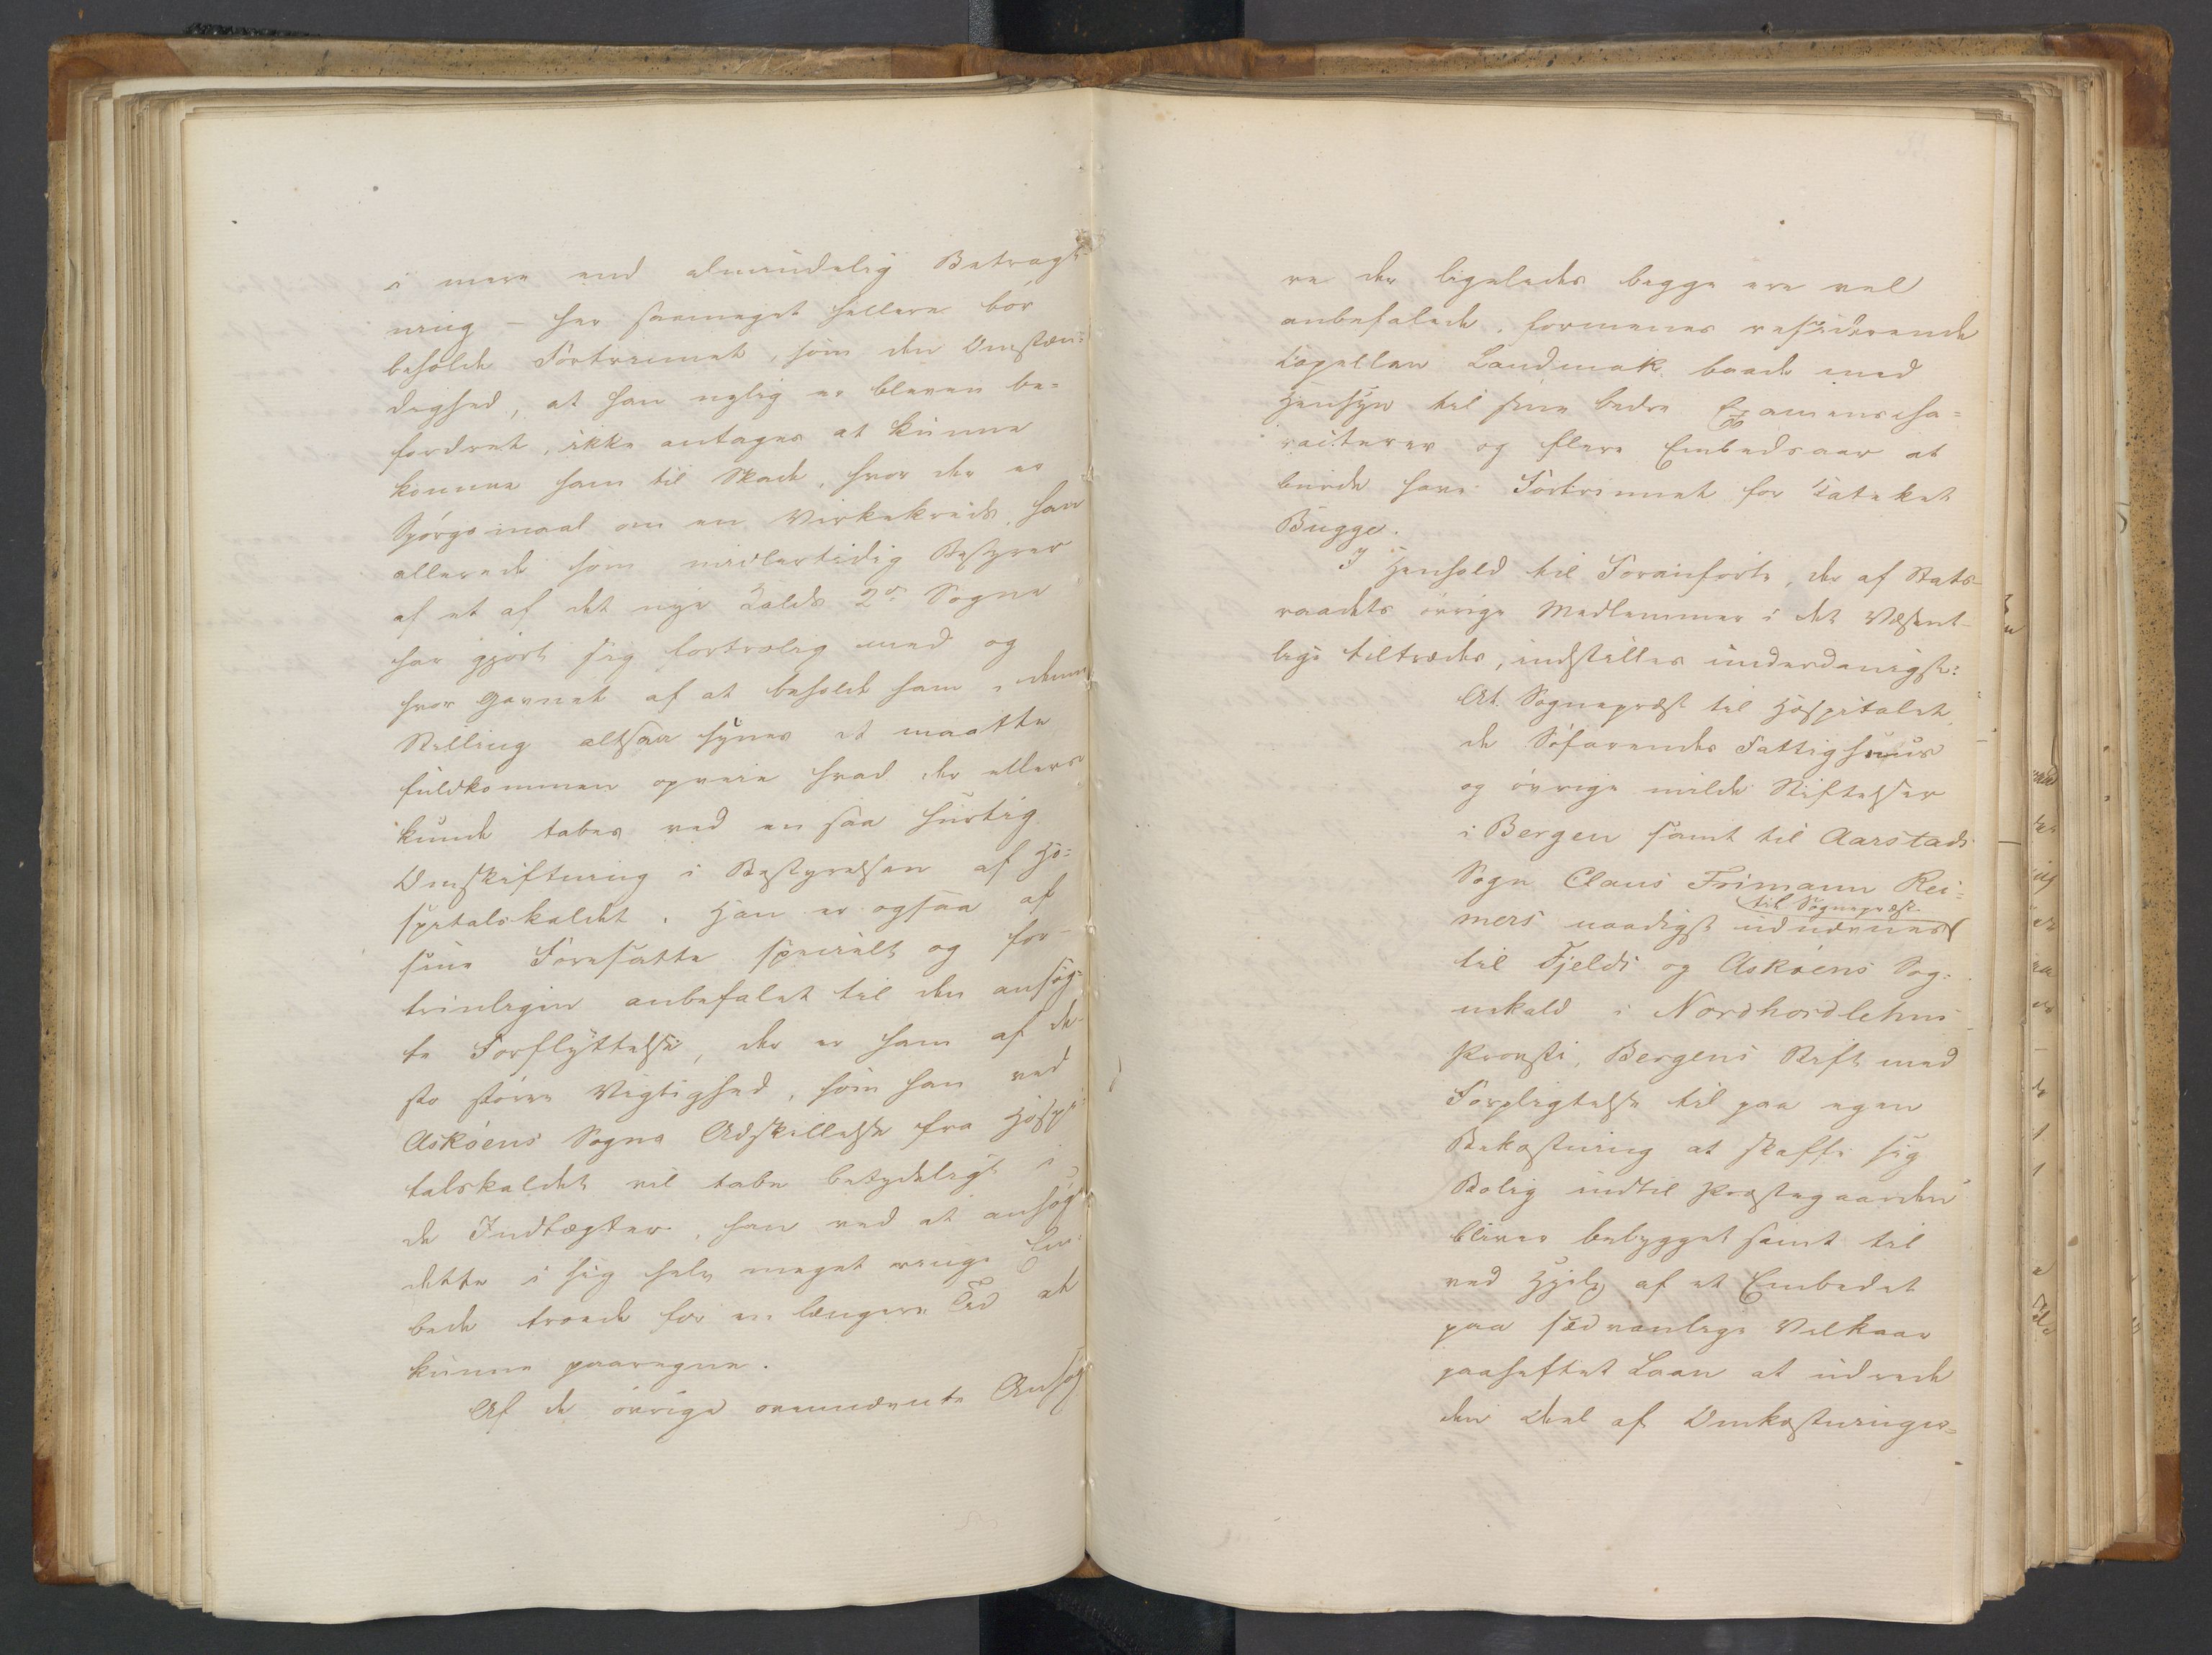 i mere end almindelig Betragt-
ning – her saameget hellere bör
beholde Fortrinnet, som den Omstæn-
dighed, at han nylig er bleven be-
fordret, ikke antages at kunne
komme ham til Skade, hvor der er
Spörgsmaal om en Virkekreds, han
allerede som midlertidig Bestyrer
af et af det nye Kalds 2de Sogne
har gjort sig fortrolig med og
hvor Gavnet af at beholde ham i denne
Stilling altsaa synes at maatte
fuldkommen opveie hvad der ellers
kunde tabes ved en saa hurtig
Omskiftning i Bestyrelsen af Ho-
spitalskaldet. Han er ogsaa af
sine Foresatte specielt og for-
trinligen anbefalet til den ansög-
te Forflyttelse, der er ham af de-
sto större Vigtighed, som han ved
Asköens Sogns Adskillelse fra Hospi-
talskaldet vil tabe betydeligt i
de Indtægter, han ved at ansöge
dette i sig selv meget ringe Em-
bede troede for en længere Tid at
kunne paaregne.
Af de övrige ovennævnte Ansög-
re der ligeledes begge ere vel
anbefalede, formenes residerende
Capellan Landmark baade med
Hensyn til sine bedre Examenscha-
racterer og flere Embedsaar at
burde have Fortrinnet for Cateket
Bugge.
I Henhold til Foranförte, der af Stats-
raadets övrige Medlemmer i det Væsent-
lige tiltrædes, indstilles underdanigst:
At Sognepræst til Hospitalet,
de Söfarendes Fattighuus
og övrige milde Stiftelser
i Bergen samt til Aarstads
Sogn Claus Frimann Rei-
til Sognepræst
mers naadigst udnævnes
til Fjelds og Asköens Sog-
nekald i Nordhordlehns
Provsti, Bergens Stift med
Forpligtelse til paa egen
Bekostning at skaffe sig
Bolig indtil Præstegaarden
bliver bebygget samt til
ved Hjelp af et Embedet
paa sædvanlige Vilkaar
paaheftet Laan at udrede
den Deel af Omkostninger-